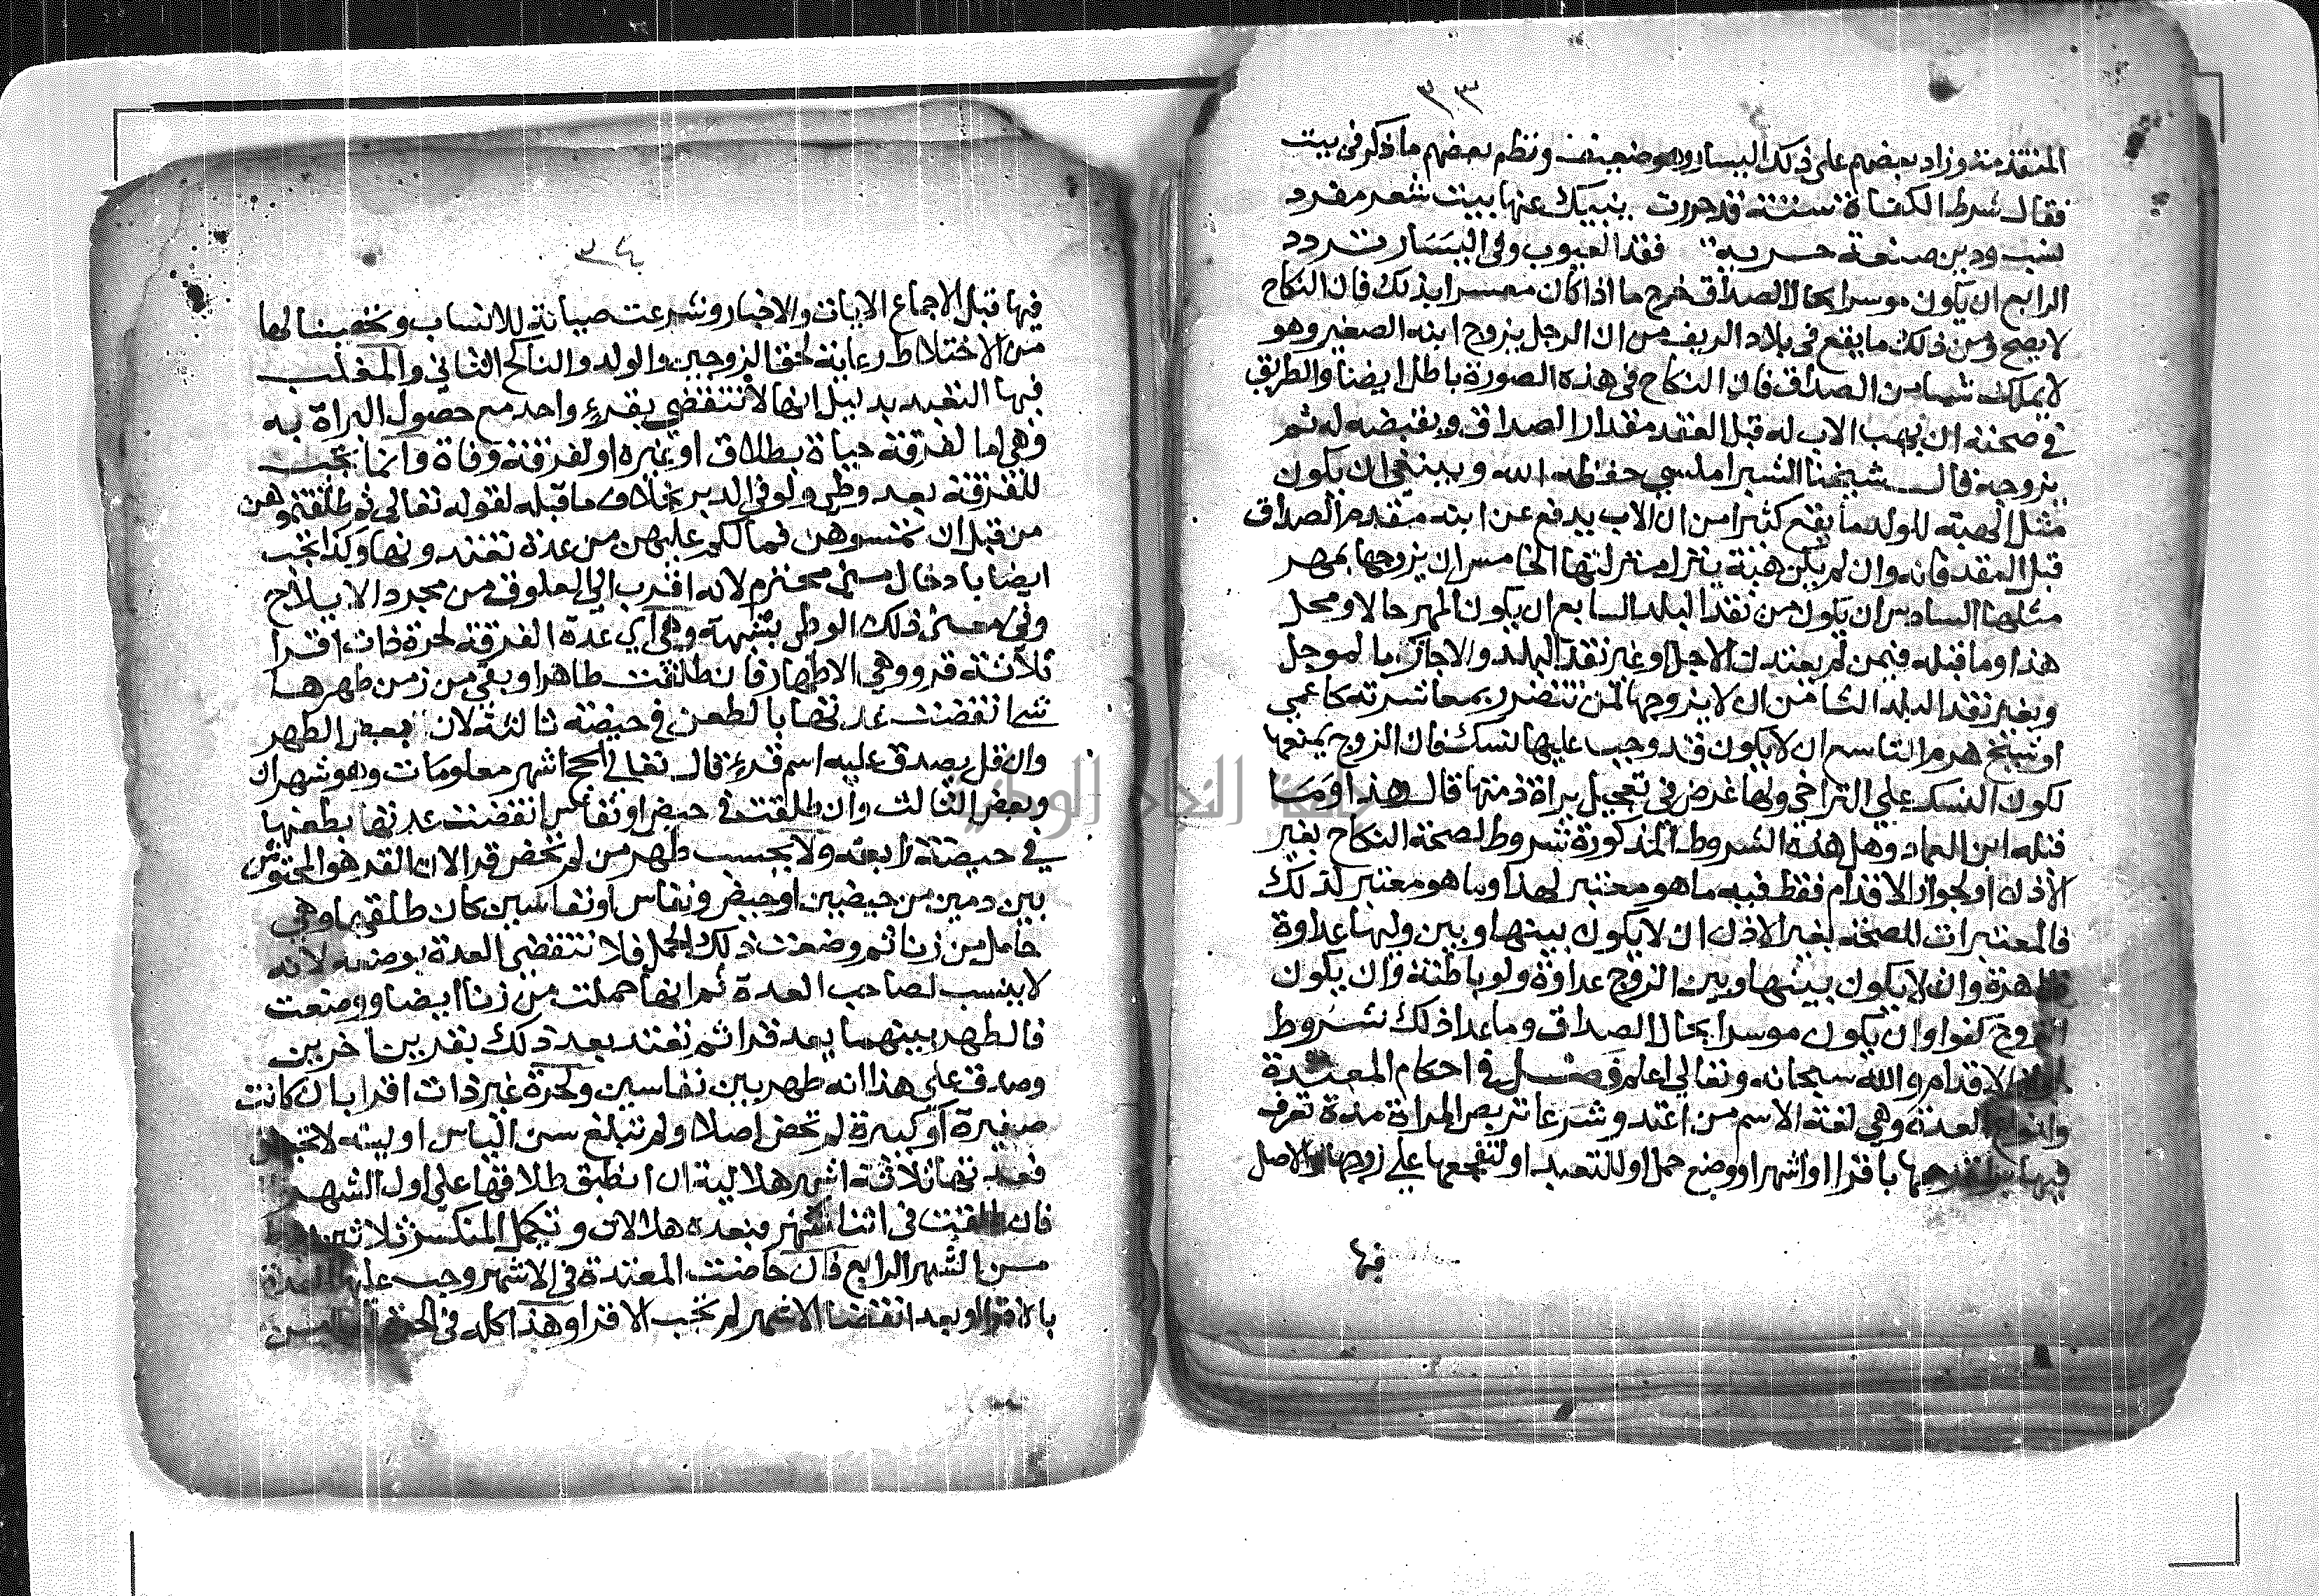 ٣٣
المتقدمة وزاد بعضهم على ذلك اليسار وهو ضعيف ونظم بعضهم ما ذكر في بيت
فقال شرط الكفاة ستة قد حررت ينبيك عنها بيت شعر مفرد
نسب ودين صنعة حرية فقد العيوب وفي اليسار تردد
الرابع ان يكون موسرا بحال الصداق خرج ما اذا كان معسرا بذلك فان النكاح
لا يصح ومن ذلك ما يقع في بلاد الريف من ان الرجل يزوج ابنه الصغير وهو
لا يملك شيا من الصداق فان النكاح في هذه الصورة باطل ايضا والطريق
في صحته ان يهب الاب له قبل العقد مقدار الصداق ويقبضه له ثم
يزوجه قال شيخنا الشبراملسي حفظه الله وينبغي ان يكون
مثل الهبة للولد ما يقع كثيرا من ان الاب يدفع عن ابنه مقدم الصداق
قبل العقد فانه وان لم يكن هبة ينزل منزلتها الخامس ان يزوجها بمهر
مثلها السادس ان يكون من نقد البلد السابع ان يكون المهر حالا ومحل
هذا وما قبله فيمن لم يعتدن الاجل او غير نقد البلد والا جاز بالموجل
وبغير نقد البلد الثامن ان لا يزوجها لمن تتضرر بمعاشرته كاعمى
او شيخ هرم التاسع ان لا يكون قد وجب عليها نسك فان الزوج يمنعها
لكون النسك على التراخي ولها غرض في تعجيل براة ذمتها قال هذا وما
قبله ابن العماد وهل هذه الشروط المذكورة شروط لصحة النكاح بغير
الاذن او لجواز الاقدام فقط فيه ما هو معتبر لهذا وما هو معتبر لذلك
فالمعتبرات للصحة بغير الاذن ان لا يكون بينها وبين وليها عداوة
ظاهرة وان لا يكون بينها وبين الزوج عداوة ولو باطنة وان يكون
الزوج كفوا وان يكون موسرا بحال الصداق وما عدا ذلك شروط
لجواز الاقدام والله سبحانه وتعالي اعلم فصل في احكام المعتدة
وانواع العدة وهي لغة الاسم من اعتد وشرعا تربص المراة مدة تعرف
فيها براة رحمها باقرا او اشهر او وضع حمل او للتعبد او لتفجعها على زوجها والاصل
فيها
٣٤
فيها قبل الاجماع الايات والاخبار وشرعت صيانة للانساب وتحصينا لها
من الاختلاط رعاية لحق الزوجين والولد والناكح الثاني والمغلب
فيها التعبد بدليل انها لا تنقضي بقرء واحد مع حصول البراة به
وهي اما لفرقة حياة بطلاق او غيره او لفرقة وفاة وانما تجب
للفرقة بعد وطي ولو في الدبر بخلاف ما قبله لقوله تعالي ثم طلقتموهن
من قبل ان تمسوهن فما لكم عليهن من عدة تعتدونها وكذا تجب
ايضا بادخال مني محترم لانه اقرب الي العلوق من مجرد الايلاج
وفي معنى ذلك الوطي بشبهة وهي اي عدة الفرقة لحرة ذات اقرا
ثلاثة قرو وهي الاطهار فان طلقت طاهرا وبقي من زمن طهرها
شيا نقضت عدتها بالطعن في حيضة ثالثة لان بعض الطهر
وان قل يصدق عليه اسم قرء قال تعالي الحج اشهر معلومات وهو شهران
وبعض الثالث وان طلقت في حيض او نفاس انقضت عدتها بطعنها
في حيضة رابعة ولا يحسب طهر من لم تحض قرا لان القر هو المحتوش
بين دمين من حيضين او حيض ونفاس او نفاسين كان طلقها وهي
حامل من زنا ثم وضعت ذلك الحمل فلا تنقضي العدة بوضعه لانه
لا ينسب لصاحب العدة ثم انها حملت من زنا ايضا ووضعت
فالطهر بينهما يعد قرا ثم تعتد بعد ذلك بقرين اخرين
وصدق علي هذا انه طهر بين نفاسين ولحرة غير ذات اقرا بان كانت
صغيرة او كبيرة لم تحض اصلا ولم تبلغ سن الياس او
فعدتها ثلاثة اشهر هلالية ان انطبق طلاقها على اول الشهر
فان طلقت في اثنا شهر فبعده هلالان وتكمل المنكسر ثلاثين
من الشهر الرابع فان حاضت المعتدة في الاشهر وجب عليها العدة
بالاقرا او بعد انقضا الاشهر لم تجب الاقرا وهذا كله في